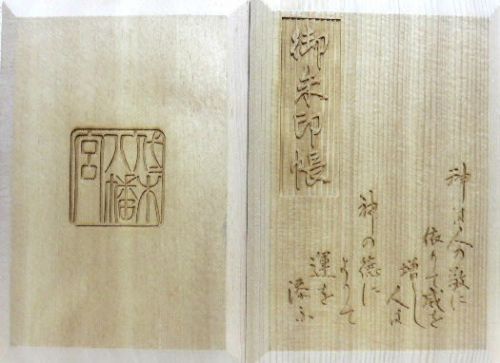 御朱印帳
神は人の敬に
依りて威を
増し
人は
神の徳に
よりて
運を
添ふ
八幡
宮